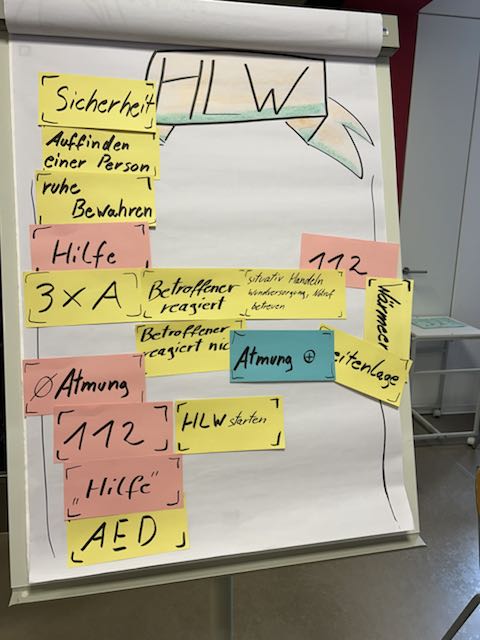 HLW
Sicherheit
Auffinden
einer Person
ruhe
Bewahren
Hilfe
112
3 x A
Betroffener
reagiert
situativ Handeln
Wundversorgung, Notruf
betreuen
Betroffener
reagiert nic
Atmung ⊕
eitenlage
Ø Atmung
112
HLW starten
„Hilfe"
AED